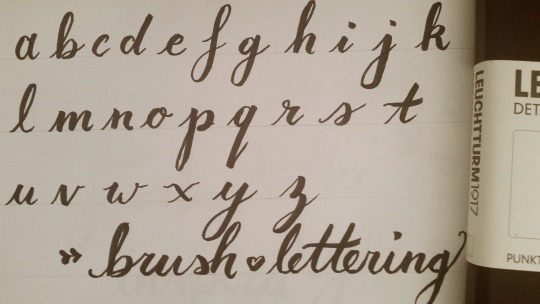 a b c d e f g h i j k
l m n o p q r s t
u v w x y z
» brush♥lettering
LEUCHTTURM1917